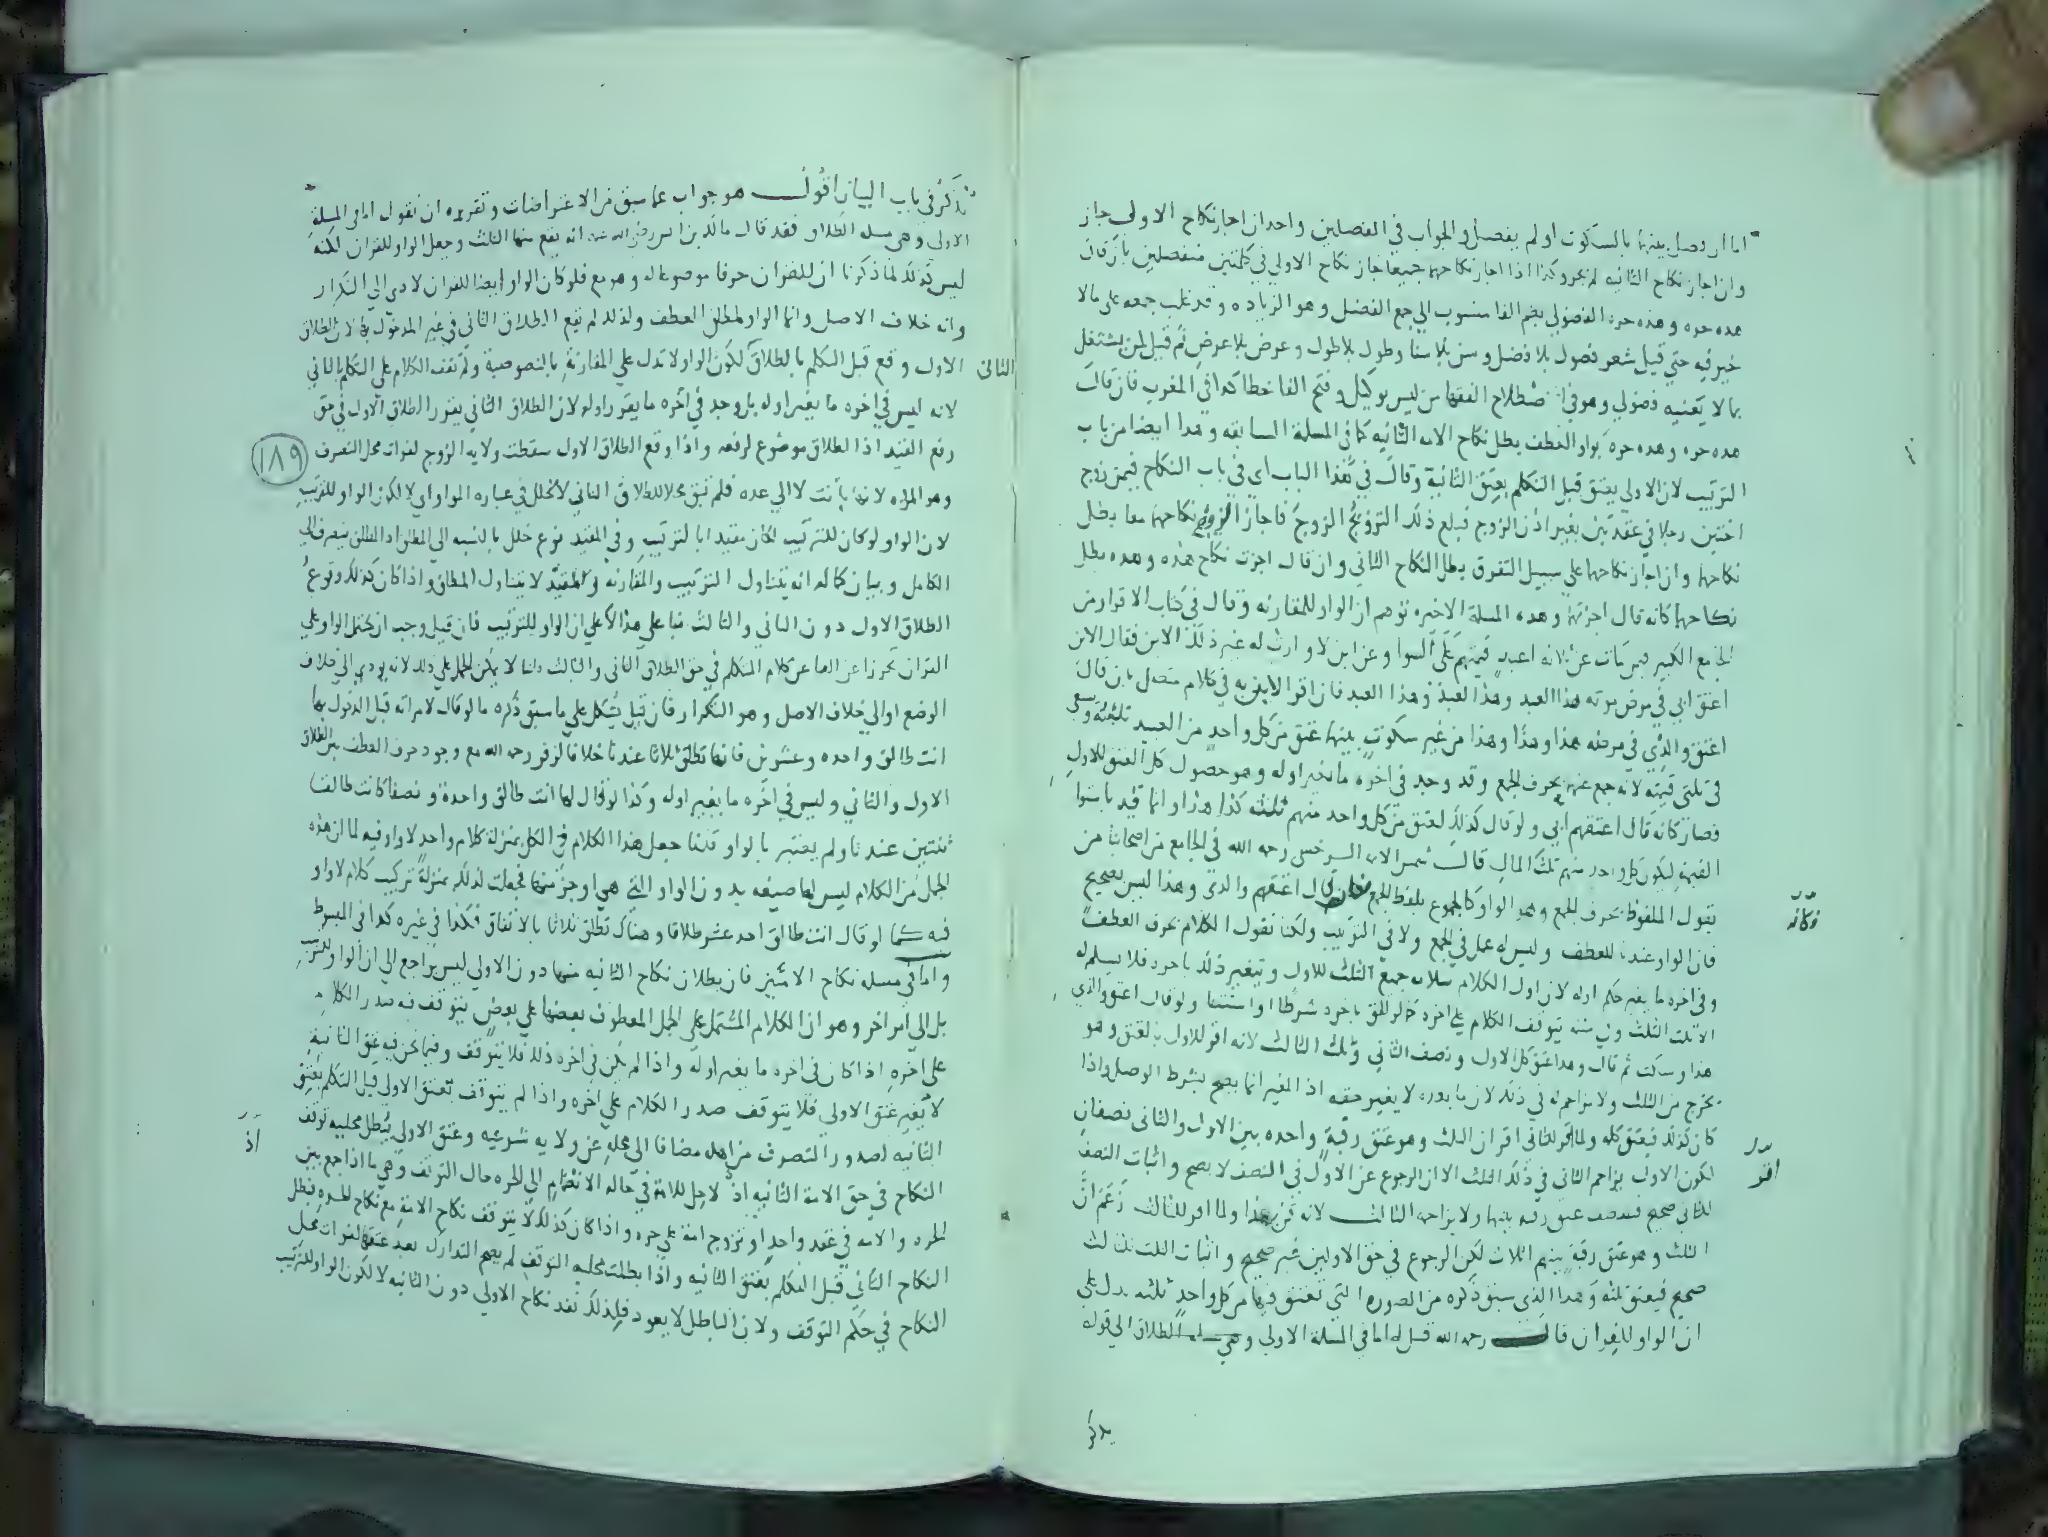 اما ان وصل بينهما بالسكوت او لم يفصل والجواب في الفصلين واحد ان اجاز نكاح الاولى جاز
وان اجاز نكاح الثانيه لم يجز وكذا اذا اجاز نكاحهما جميعا جاز نكاح الاولي في كلمتين منفصلين بان قال
هده حره وهده حره الفضولي بضم الفا منسوب الي جمع الفضل وهو الزياده وقد غلب جمعه على ما لا
خير فيه حتي قيل شعر فضول بلا فضل وسن بلا سنا وطول بلا طول وعرض بلا عرض ثم قيل لمن يشتغل
بما لا يعنيه فضولي وهو في اصطلاح الفقها من ليس بوكيل وفتح الفا خطا كدا في المغرب فان قال
هده حره وهده حره بواو العطف بطل نكاح الامه الثانيه كما في المسلة السابقه وهدا ايضا من باب
الترتيب لان الاولي يعتق قبل التكلم بعتق الثانية وقال في هذا الباب اي في باب النكاح فيمن زوج
اختين رجلا في عقدتين بغير اذن الزوج فبلغ ذلك التزويج الزوج فاجاز الزوج نكاحهما معا بطل
نكاحهما وان اجاز نكاحهما علي سبيل التفرق بطل النكاح الثاني وان قال اجزت نكاح هذه وهده بطل
نكاحهما كانه قال اجزتهما وهده المسلة الاخيره توهم ان الواو للمقارنه وقال في كتاب الاقرار من
الجامع الكبير فيمن مات عن ثلاثه اعبد قيمتهم علي السوا وعن ابن لا وارث له غير ذلك الابن فقال الابن
اعتق ابي في مرض موته هدا العبد وهذا العبد وهذا العبد فان اقر الابن به في كلام متصل بان قال
اعتق والدي في مرضه هدا وهدا وهذا من غير سكوت بينهما عتق من كل واحد من العبيد ثلثه وسعي
في ثلثي قيمته لانه جمع عنهم بحرف الجمع وقد وجد في اخره ما يغير اوله وهو حصول كل العتق للاول
فصار كانه قال اعتقهم ابي ولو قال كذلك لعتق من كل واحد منهم ثلثه كذا هذا وانما قيد باستوا
القيمة ليكون كل واحد منهم ثلث المال قال شمس الايمه السرخسي رحمه الله في الجامع من اصحابنا من
يقول الملفوظ بحرف الجمع وهو الواو كالمجموع بلفظ الجمع قال اعتقهم والدي وهذا ليس بصحيح
فان الواو عندنا للعطف وليس له عمل في الجمع ولا في الترتيب ولكنا نقول الكلام بحرف العطف
وفي اخره ما يغير حكم اوله لان اول الكلام سلامه جميع الثلث للاول وتغير ذلك باخره فلا يسلم له
الا ثلث الثلث يتوقف الكلام علي اخره كما لو الحق باخره شرطا او استثنا ولو قال اعتق والدي
هذا وسكت ثم قال وهدا عتق كل الاول ونصف الثاني وثلث الثالث لانه اقر للاول بالعتق وهو
يخرج من الثلث ولا مزاحم له في ذلك لان ما بعده لا يغير حقه اذ المغير انما يصح بشرط الوصل واذا
كان كذلك فيعتق كله ولما اقر للثاني اقر ان الثلث وهو عتق رقبة واحده بين الاول والثاني نصفان
لكون الاول يزاحم الثاني في ذلك الثلث الا ان الرجوع عن الاول في النصف لا يصح واثبات النصف
للثاني صحيح عتق رقبه بينهما ولا يزاحمه الثالث ولما اقر للثالث زعم ان
الثلث وهو عتق رقبة بينهم اثلاث لكن الرجوع في حق الاولين غير صحيح واثبات الثلث للثالث
صحيح فيعتق ثلثه وهدا الذي سبق ذكره من الصوره التي تعتق فيها من كل واحد ثلثه يدل علي
ان الواو للقران قال رحمه الله قيل له اما في المسلة الاولي وهي مسلة الطلاق الي قوله
فكانه
اقر
يذكر
يذكر في باب البيان اقول هو جواب عما سبق من الاعتراضات وتقريره ان نقول اما في المسلة
الاولي وهي مسله الطلاق فقد قال مالك بن انس رضي الله عنه انه يقع منها الثلث وجعل الواو للقران لكنه
ليس كذلك لما ذكرنا ان للقران حرفا موضوعا له وهو مع فلو كان الواو ايضا للقران لادي الي التكرار
وانه خلاف الاصل وانما الواو لمطلق العطف ولذلك لم يقع الطلاق الثاني في غير المدخول بها لان الطلاق
الثاني
الاول وقع قبل التكلم بالطلاق لكون الواو لا تدل علي المقارنة بالنصوصية ولم تقف الكلام علي التكلم بالثاني
لانه ليس في اخره ما يغير اوله بل وجد في اخره ما يقرر اوله لان الطلاق الثاني يقرر الطلاق الاول في حق
رفع القيد اذ الطلاق موضوع لرفعه واذا وقع الطلاق الاول سقطت ولايه الزوج لفوات محل التصرف
١٨٩
وهو المراه لانها بانت لا الي عده فلم تبق محلا للطلاق الثاني لا لخلل في عباره الواو اي لا لكون الواو للترتيب
لان الواو لو كان للترتيب لكان مقيدا بالترتيب وفي المقيد نوع خلل بالنسبه الي المطلق اذ المطلق ينصرف الي
الكامل وبيان كماله انه يتناول الترتيب والمقارنه والمقيد لا يتناول المطلق واذا كان كذلك وقوع
الطلاق الاول دون الثاني والثالث بنا علي هذا لا علي ان الواو للترتيب فان قيل وجب ان يحمل الواو علي
القران تحرزا عن الغا عن كلام المتكلم في حق الطلاق الثاني والثالث قلنا لا يمكن الحمل علي ذلك لانه يودي الي خلاف
الوضع او الي خلاف الاصل وهو التكرار فان قيل يشكل علي ما سبق ذكره ما لو قال لامراته قبل الدخول بها
انت طالق واحده وعشرين فانها تطلق ثلاثا عندنا خلافا لزفر رحمه الله مع وجود حرف العطف بين الطلاق
الاول والثاني وليس في اخره ما يغير اوله وكذا لو قال لها انت طالق واحدة ونصفا كانت طالقا
ثنتين عندنا ولم يعتبر بالواو قلنا جعل هذا الكلام في الكل بمنزلة كلام واحد لا واو فيه لما ان هذه
الجمل من الكلام ليس لها صيغه بدون الواو التي هي اوجز منها فجعلت لذلك بمنزلة تركيب كلام لا واو
فيه كما لو قال انت طالق احد عشر طلاقا وهناك تطلق ثلاثا بالاتفاق فكذا في غيره كدا في المبسوط
واما في مسله نكاح الامتين فان بطلان نكاح الثانيه منهما دون الاولي ليس براجع الي ان الواو للترتيب
بل الي امر اخر وهو ان الكلام المشتمل علي الجمل المعطوف بعضها علي بعض يتوقف فيه صدر الكلام
علي اخره اذا كان في اخره ما يغير اوله واذا لم يكن في اخره ذلك فلا يتوقف وفيما نحن فيه عتق الثانية
لا يغير عتق الاولي فلا يتوقف صدر الكلام علي اخره واذا لم يتوقف تعتق الاولي قبل التكلم بعتق
الثانيه لصدور التصرف من اهله مضافا الي محله عن ولايه شرعيه وعتق الاولي يبطل محليه توقف
اذ
النكاح في حق الامة الثانيه اذ لا حل للامة في حاله الانضمام الي الحره حال التوقف وهي ما اذا جمع بين
الحره والامه في عقد واحد او تزوج امة علي حره واذا كان كذلك لا يتوقف نكاح الامة مع نكاح الحره فبطل
النكاح الثاني قبل التكلم بعتق الثانيه واذا بطلت محليه التوقف لم يصح التدارك بعد عتقها لفوات محل
النكاح في حكم التوقف ولان الباطل لا يعود فلذلك نفد نكاح الاولي دون الثانيه لا لكون الواو للترتيب